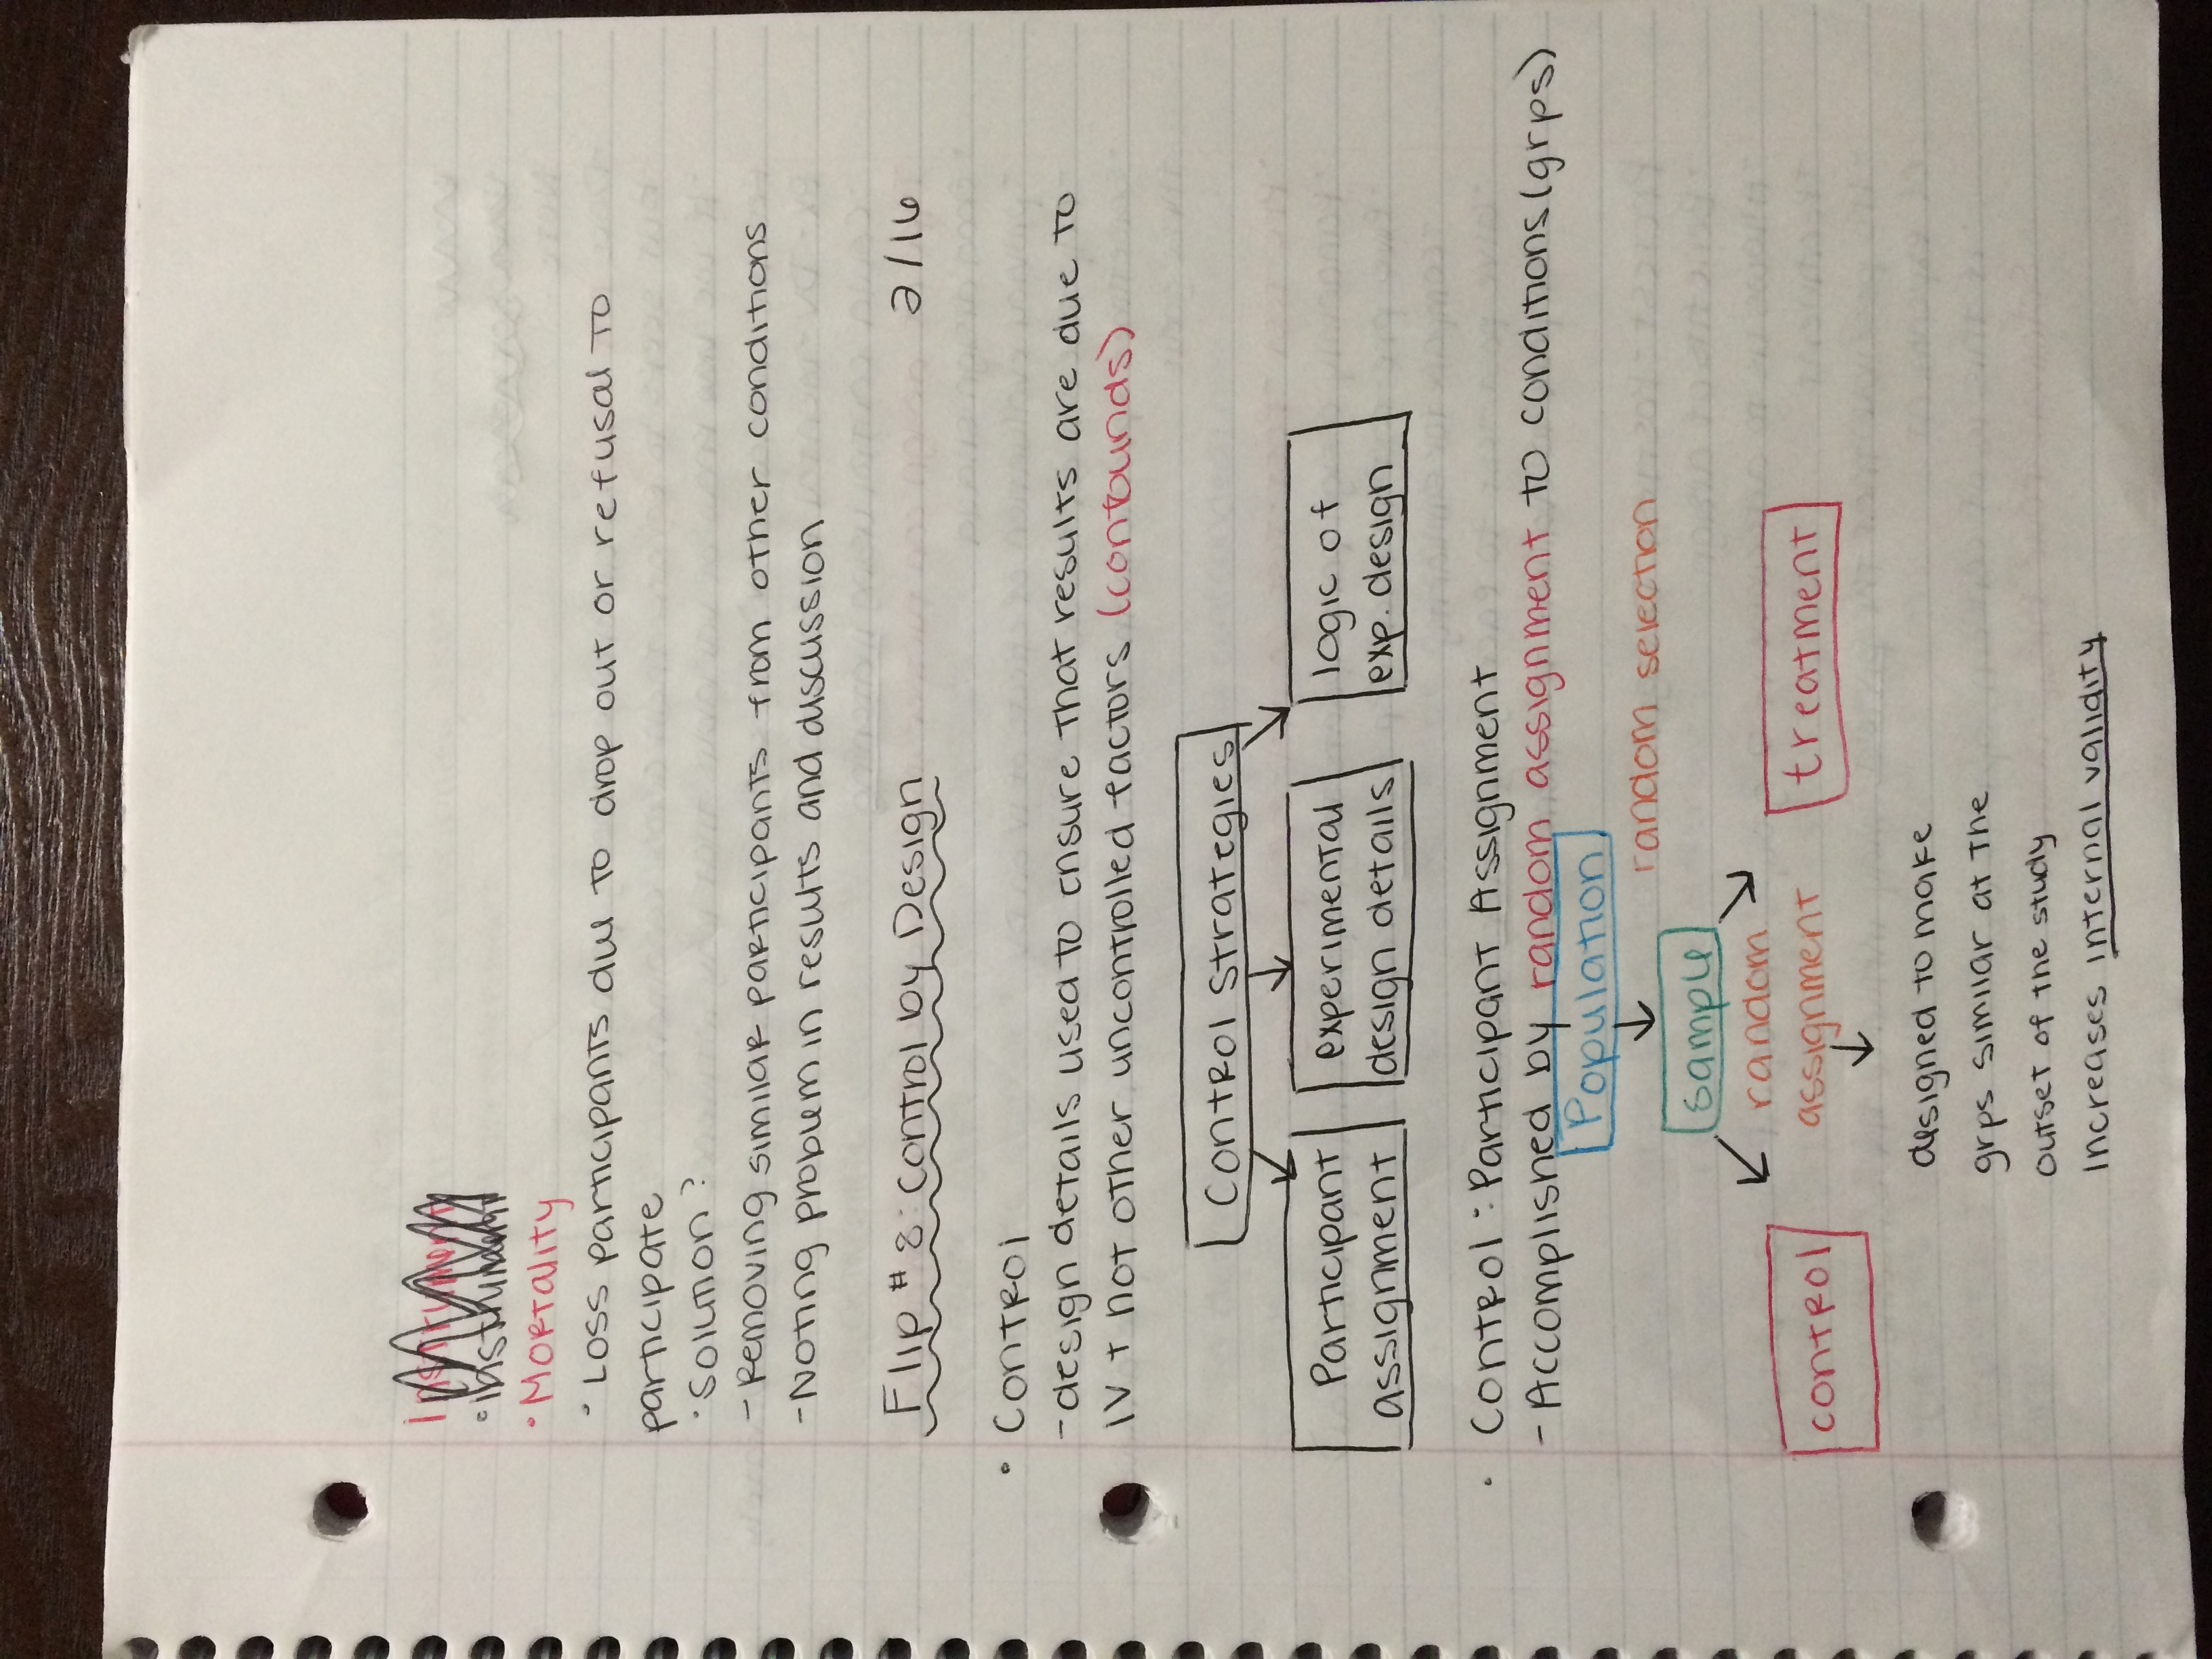 Instrument
· Instrument
· Mortality
· Loss participants due to drop out or refusal to
participate
· Solution?
- Removing similar participants from other conditions
- Noting problem in results and discussion
Flip #8: Control by Design 2/16
· Control
- design details used to ensure that results are due to
IV + not other uncontrolled factors (confounds)
Control Strategies
Participant assignment
experimental design details
logic of exp. design
· Control: Participant Assignment
- Accomplished by random assignment to conditions (grps)
Population
random selection
sample
random
assignment
control
treatment
designed to make
grps similar at the
outset of the study
increases internal validity